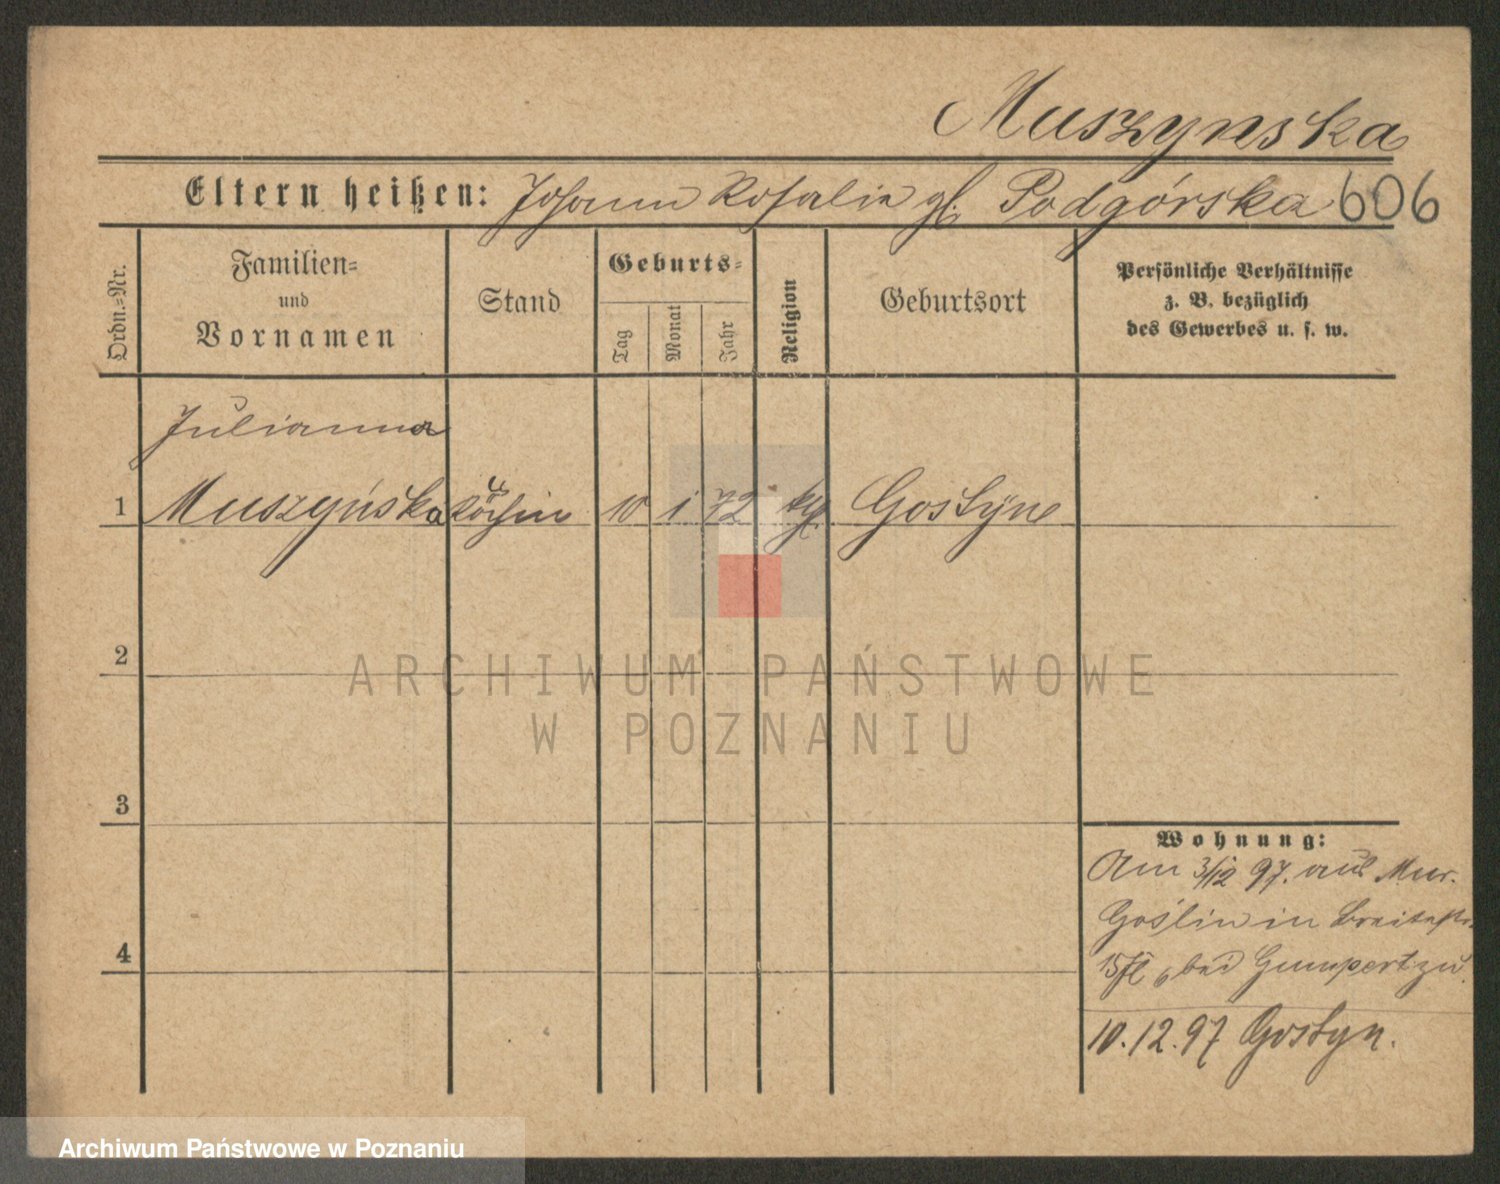 Muszynska
Eltern heißen: Johann Rosalie gb. Podgórska 606
Ordn.=Nr.
Familien=
und
Vornamen
Stand
Geburts=
Tag
Monat
Jahr
Religion
Geburtsort
Persönliche Verhältnisse
z. B. bezüglich
des Gewerbes u. s. w.
Julianna
1 Muszyńska Köchin 10 1 72 kth. Gostyne
2
ARCHIWUM PAŃSTWOWE
W POZNANIU
3
Wohnung:
Am 3/12 97. aus Mur.
Goślin in Breitestr.
15 bei Gumpert zu.
4
10.12.97 Gostyn.
Archiwum Państwowe w Poznaniu